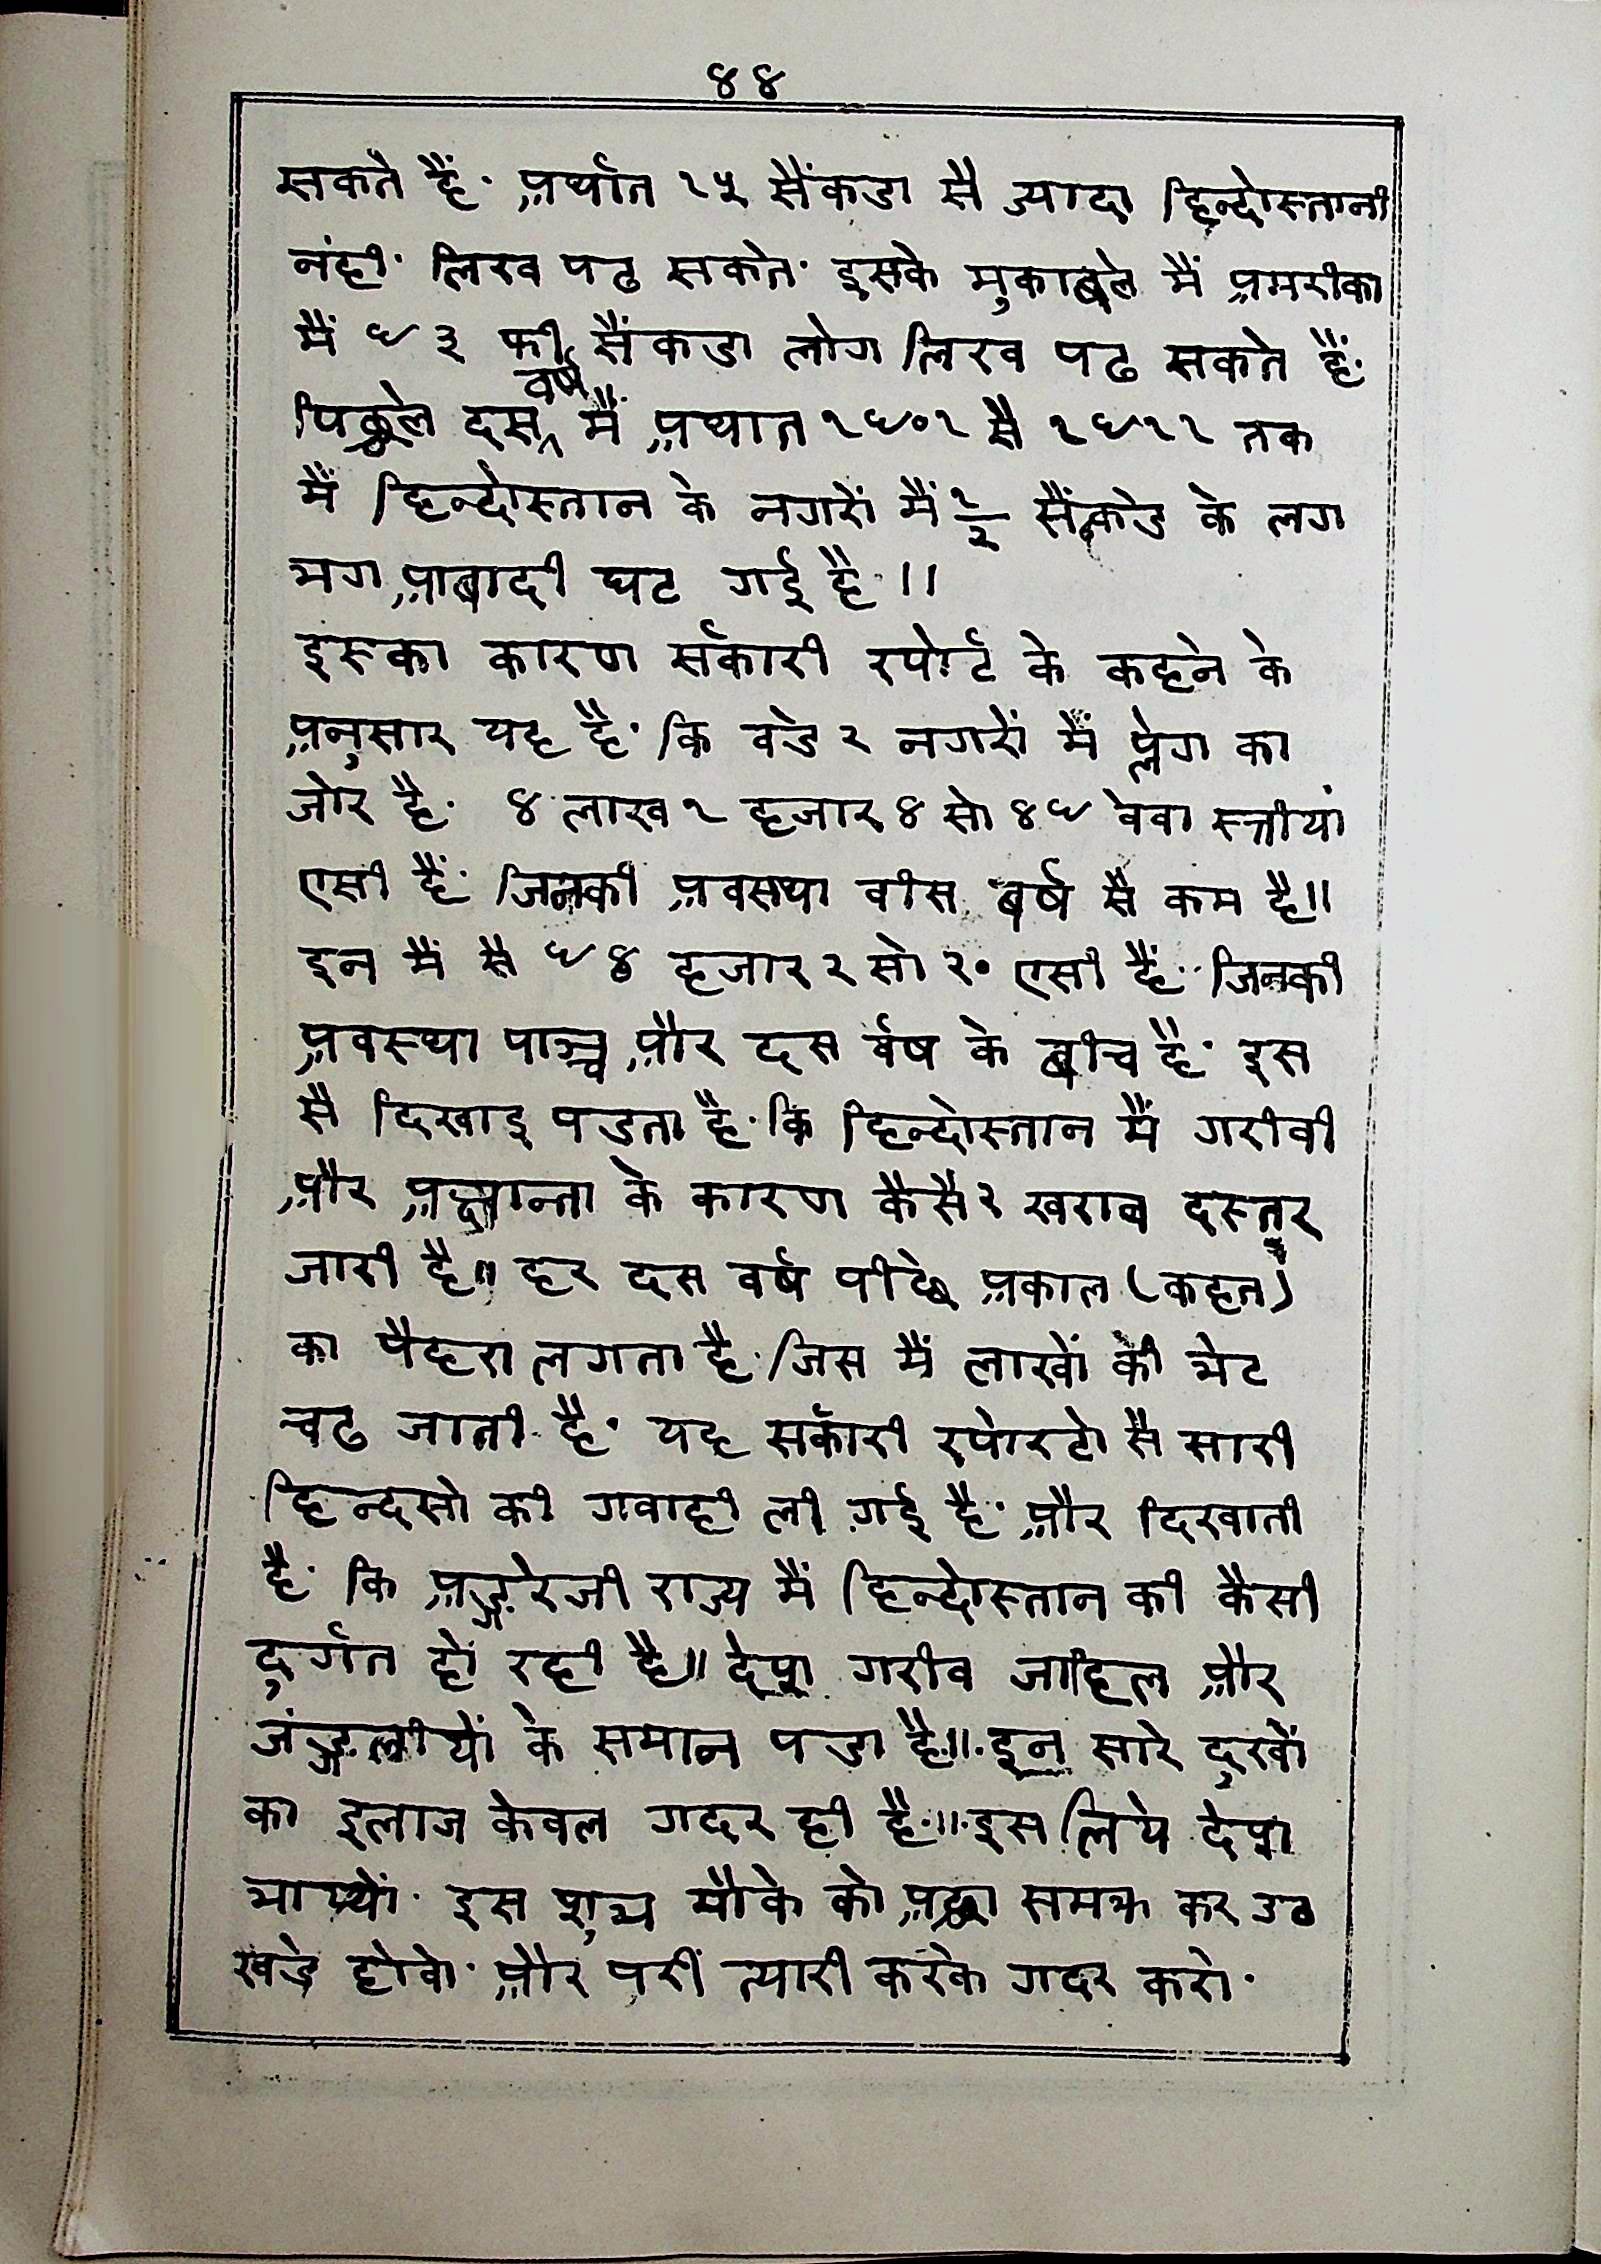 ४४
सकते हैं· अर्थात १५ सैंकडा सै ज्यादा हिन्दोस्तानी
नंही· लिख पढ सकते· इसके मुकाबले मैं अमरीका
मैं ९३ फी सैंकडा लोग लिख पढ सकते हैं·
पिछले दस वर्ष मैं अर्थात १९०१ सै १९११ तक
मैं हिन्दोस्तान के नगरों मैं १/२ सैंकडे के लग
भग आबादी घट गई है·॥
इस्का कारण सर्कारी रपोर्ट के कहने के
अनुसार यह है· कि वडे २ नगरों में प्लेग का
जोर है· ४ लाख १ हजार ४ सो ४९ वेवा स्त्रीयां
एसी हैं· जिनकी अवसथा वीस बर्ष सै कम है॥
इन मैं सै ९४ हजार २ सो २० एसी हैं· जिनकी
अवस्था पाञ्च और दस र्वष के बीच है· इस
सै दिखाइ पडता है· कि हिन्दोस्तान मैं गरीवी
और अज्ञान्ता के कारण कैसै २ खराब दस्तूर
जारी है॥ हर दस वर्ष पीछे अकाल (कहत)
का पैहरा लगता है· जिस मैं लाखों की भेट
चढ जाती है· यह सर्कारी रपोरटो सै सारी
हिन्दसो की गवाही ली गई है· और दिखाती
है· कि अङ्गरेजी राज्य मैं हिन्दोस्तान की कैसी
दुर्गत हो रही है॥ देश गरीव जाहिल और
जंङ्गलीयों के समान पडा है·॥· इन सारे दुखों
का इलाज केवल गदर ही है·॥· इस लिये देश
भाय्यों· इस शुभ मौके को अछा समझ कर उठ
खडे होवो· और परीं त्यारी करके गदर करो·